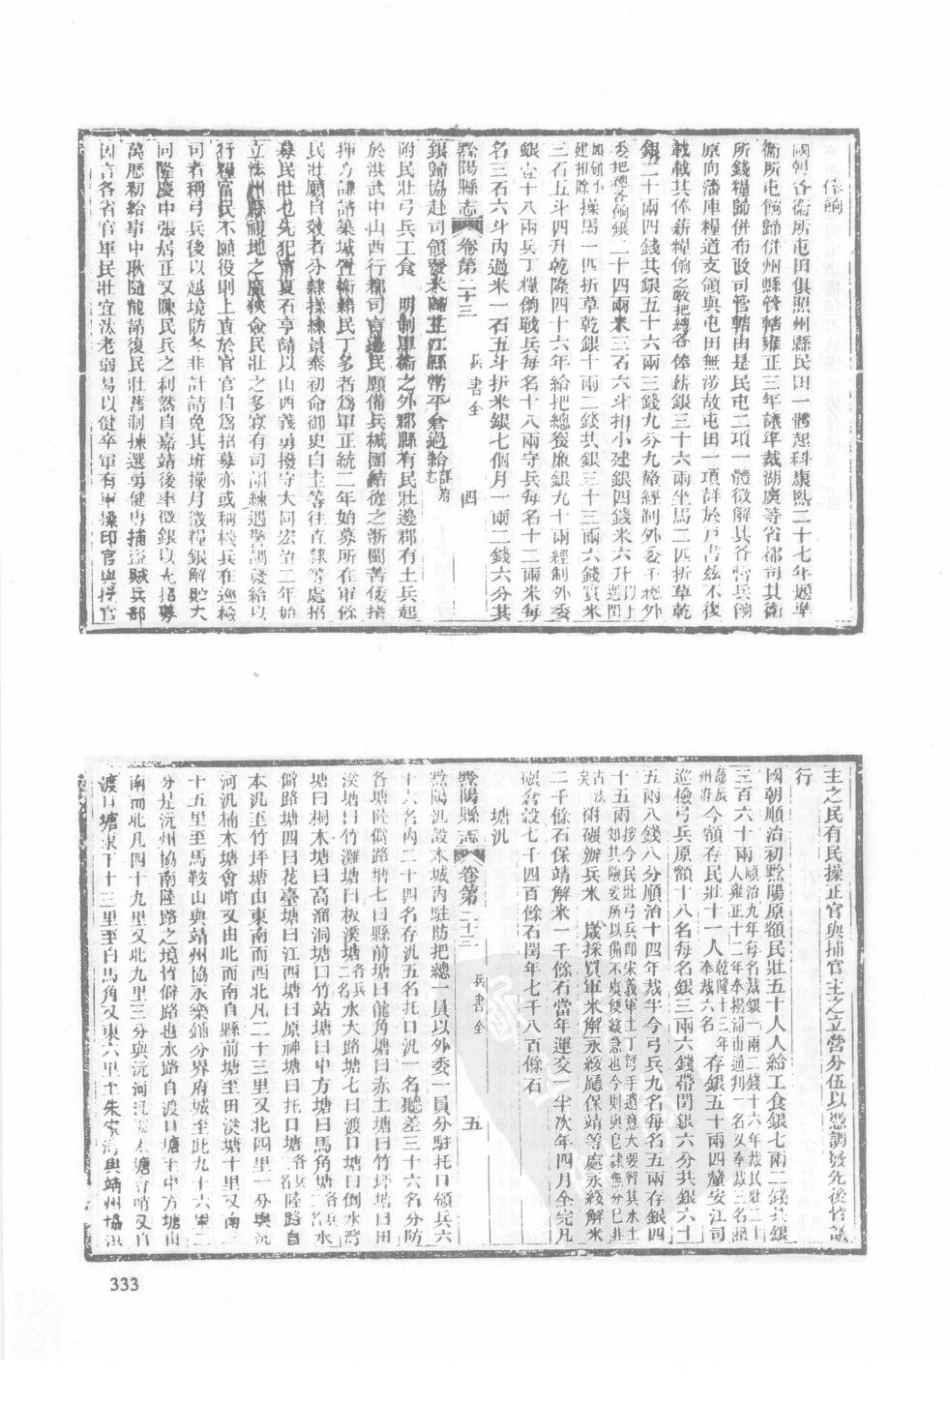 俸餉
國朝各衛所屯田俱照州縣民田一體起科康熙二十七年題準
衛所屯餉歸併州縣管轄雍正三年議準裁湖廣等省都司其衛
所錢糧歸併布政司管轄由是民屯二項一體徵解其各營兵餉
原向藩庫糧道支領與屯田無涉故屯田一項詳於戶書茲不復
載載其俸薪糧餉之數把總各俸薪銀三十六兩坐馬二匹折草乾
銀二十兩四錢共銀五十六兩三錢九分九釐經制外委千把外
委把總各餉銀二十四兩米三石六斗扣小建銀四錢米六升
加領小建扣除操馬一匹折草乾銀十兩二錢共銀三十三兩六錢實米
三石五斗四升乾隆四十六年給把總養廉銀九十兩經制外委
銀壹十八兩兵丁糧餉戰兵每名十八兩守兵每名十二兩米每
名三石六斗內過米一石五斗折米銀七個月一兩二錢六分其
黔陽縣志 卷第二十三 兵書全 四
銀歸協赴司領發米歸芷江縣常平倉過給詳府志
附民壯弓兵工食 明制軍衛之外郡縣有民壯邊郡有土兵起
於洪武中山西行都司言邊民願備兵械團結從之浙閩苦倭指
揮方謙請築城置衛籍民丁多者爲軍正統二年始募所在軍餘
民壯願自效者分隸操練景泰初命御史白圭等往直隸等處招
募民壯也先犯甯夏石亨請以山西義勇撥守大同宏治二年始
立法州縣視地之廣狹僉民壯之多寡有司訓練遇警調發給以
行糧富民不願役則上直於官官自爲招募亦或稱機兵在巡檢
司者稱弓兵後以越境防冬非計請免其班操月徵糧銀解貯大
同隆慶中張居正又陳民兵之利然自嘉靖後率徵銀以充招募
萬歷初給事中耿隨龍請復民壯舊制揀選勇健專捕盜賊兵部
因言各省官軍民壯宜汰老弱易以健卒軍有軍操印官與捕官
主之民有民操正官與捕官主之立營分伍以憑調發先後皆議
行
國朝順治初黔陽原額民壯五十人人給工食銀七兩二錢共銀
三百六十兩順治九年每名裁銀一兩二錢十六年裁民壯二十人雍正十二年奉撥浦市通判一名又奉裁三名撥辰州府今額存民壯十一人乾隆十三年奉裁六名存銀五十兩四釐安江司
巡檢弓兵原額十八名每名銀三兩六錢帶閏銀六分共銀六十
五兩八錢八分順治十四年裁半今弓兵九名每名五兩存銀四
十五兩按今民壯弓兵即宋義軍士丁弩手遺意大要習其水土知其險要所以備不虞便緩急也今則與皂隸無分已非古法矣 附碾辦兵米 歲採買軍米解永綏廳保靖等處永綏解米
二千餘石保靖解米一千餘石當年運交一半次年四月全完凡
碾倉穀七千四百餘石閏年七千八百餘石
塘汛
黔陽縣志 卷第二十三 兵書全 五
黔陽汛設木城內駐防把總一員以外委一員分駐托口領兵六
十六名內二十四名存汛五名托口汛一名聽差三十六名分防
各塘陸僻路塘七曰縣前塘曰龍角塘曰赤土塘曰竹坪塘曰田
溪塘曰竹灘塘曰板溪塘二名各兵水大路塘七曰渡口塘曰倒水灣
塘曰桐木塘曰高溜洞塘曰竹站塘曰中方塘曰馬角塘二名各兵水
僻路塘四曰花臺塘曰江西塘曰原神塘曰托口塘二名各兵陸路自
本汛至竹坪塘由東南而西北凡二十三里又北四里一分與沅
河汛楠木塘會哨又由北而南自縣前塘至田溪塘十里又南
十五里至馬鞍山與靖州協永樂鋪分界府城至此九十六里二
分是沅州協南陸路之境皆僻路也水路自渡口塘中方塘由
南而北凡四十九里又北九里三分與沅河汛塘會哨又自
渡口塘東下十三里至白馬角又東六里至朱家灣與靖州協洪
333